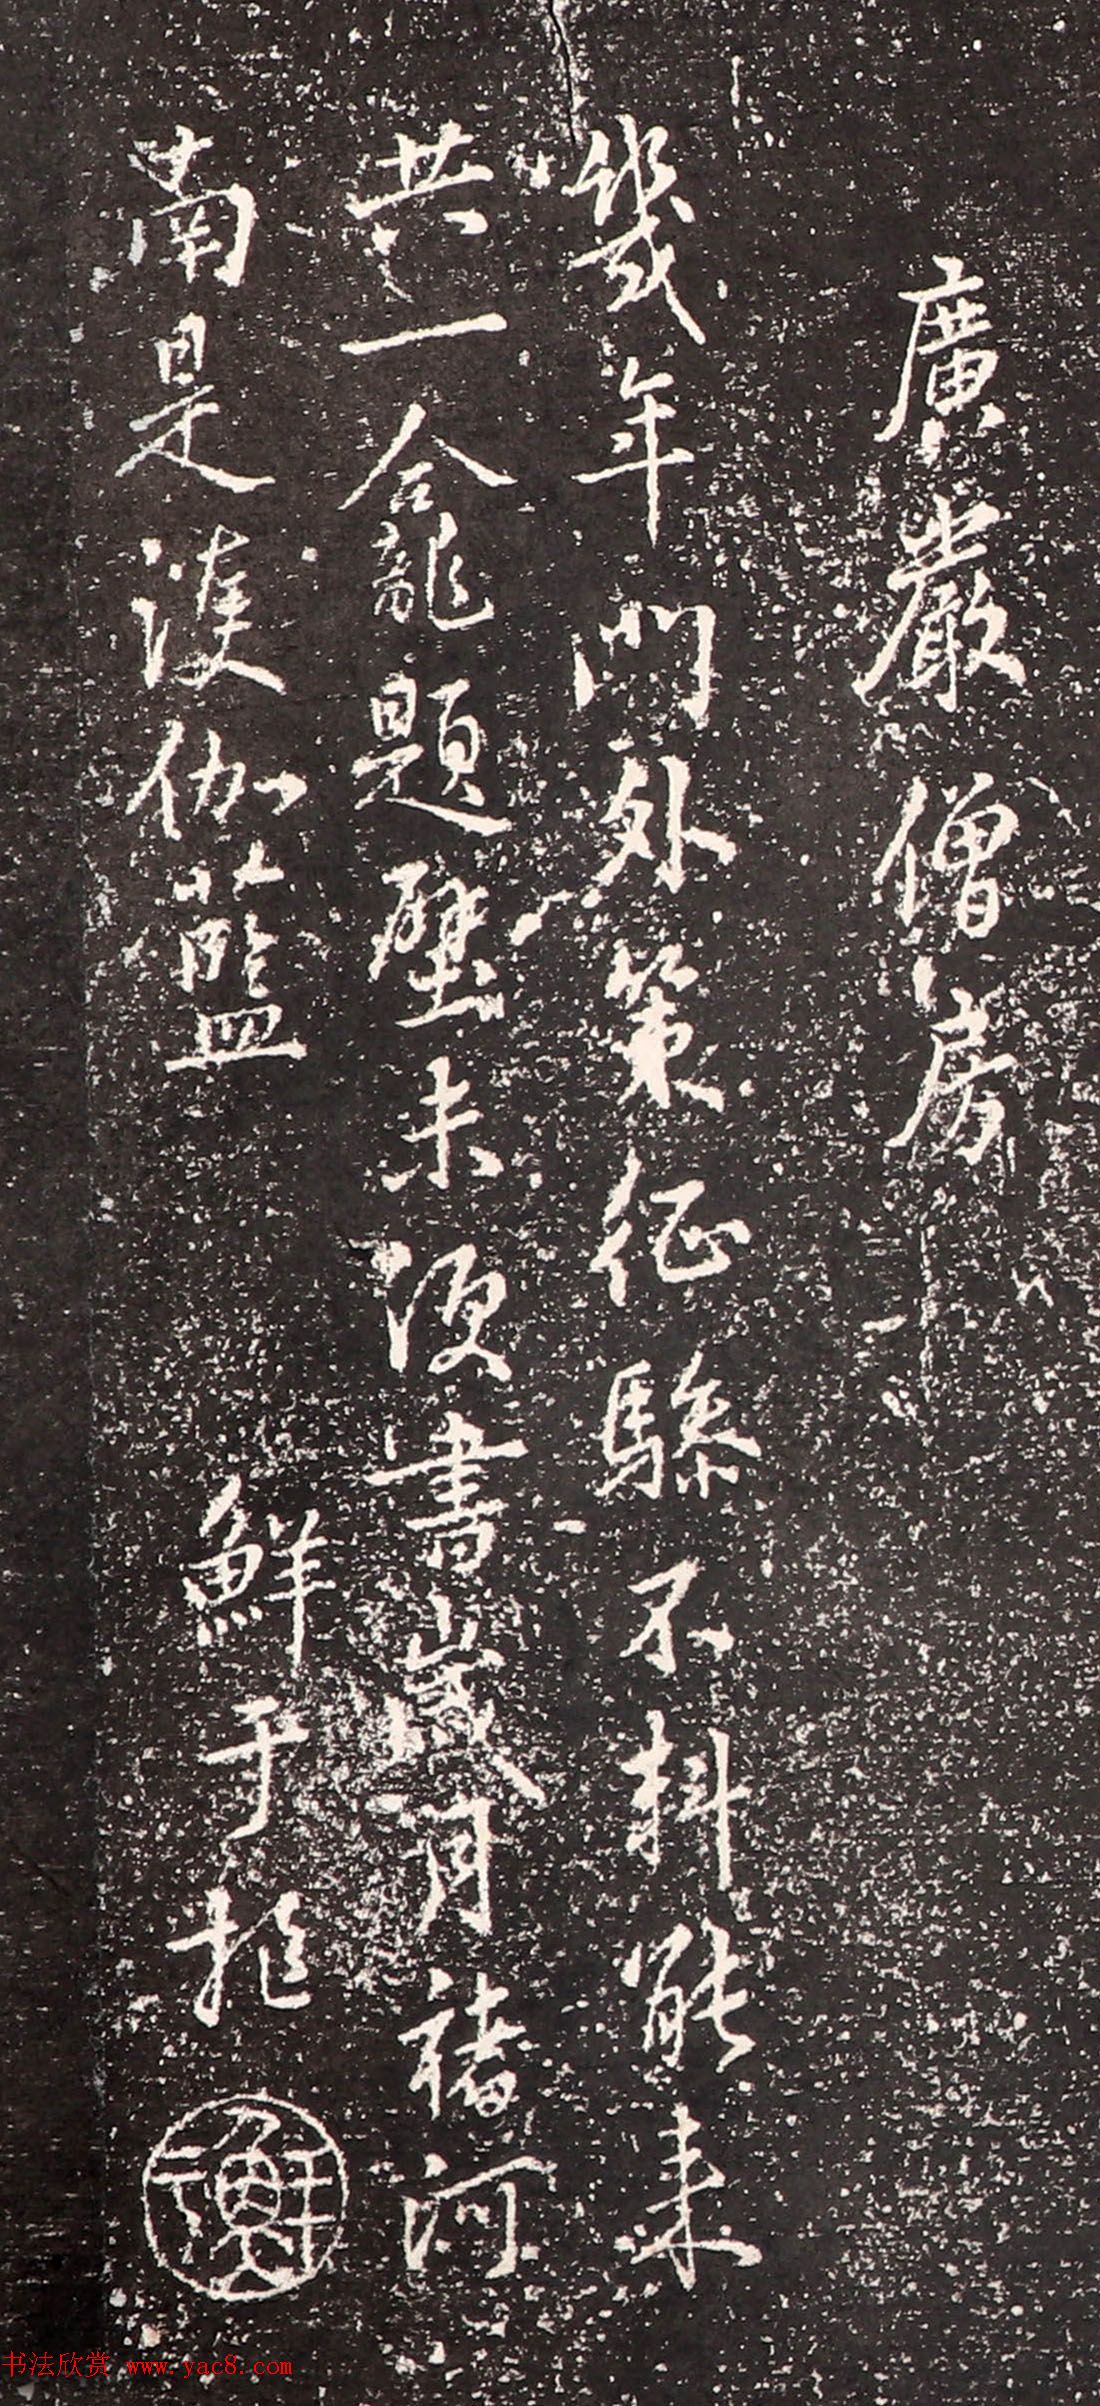 廣巖僧房
幾年門外策征驂不料能來
共一龕題壁未須書歲月褚河
南是護伽藍
鮮于樞
书法欣赏 www.yac8.com